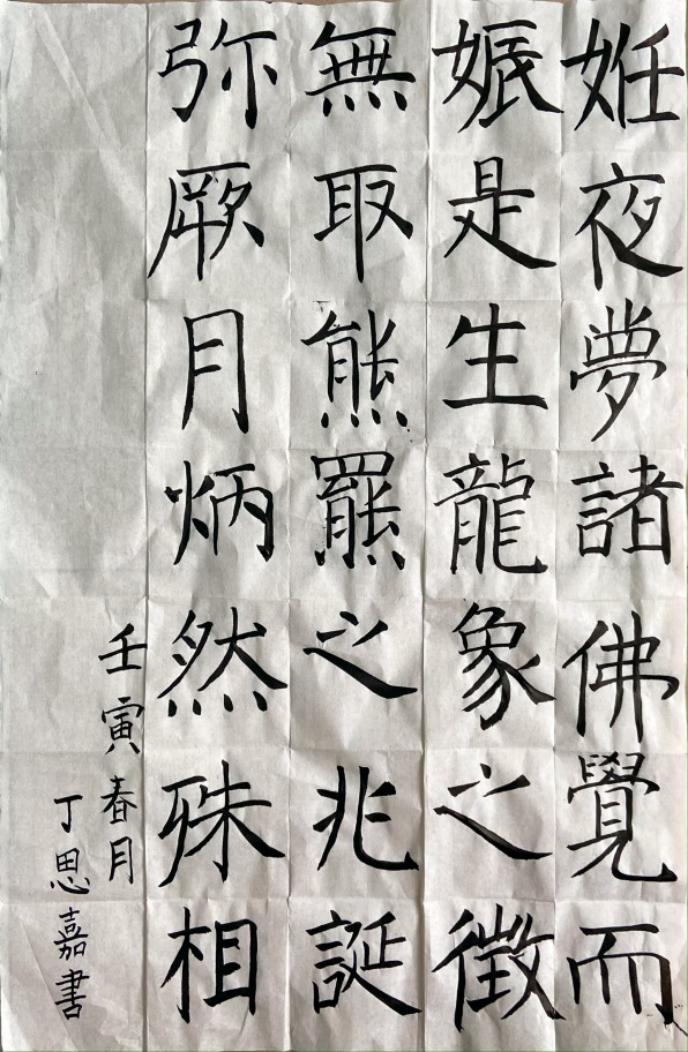 姙夜夢諸佛覺而
娠是生龍象之徵
無取熊羆之兆誕
弥厥月炳然殊相
壬寅春月
丁思嘉書